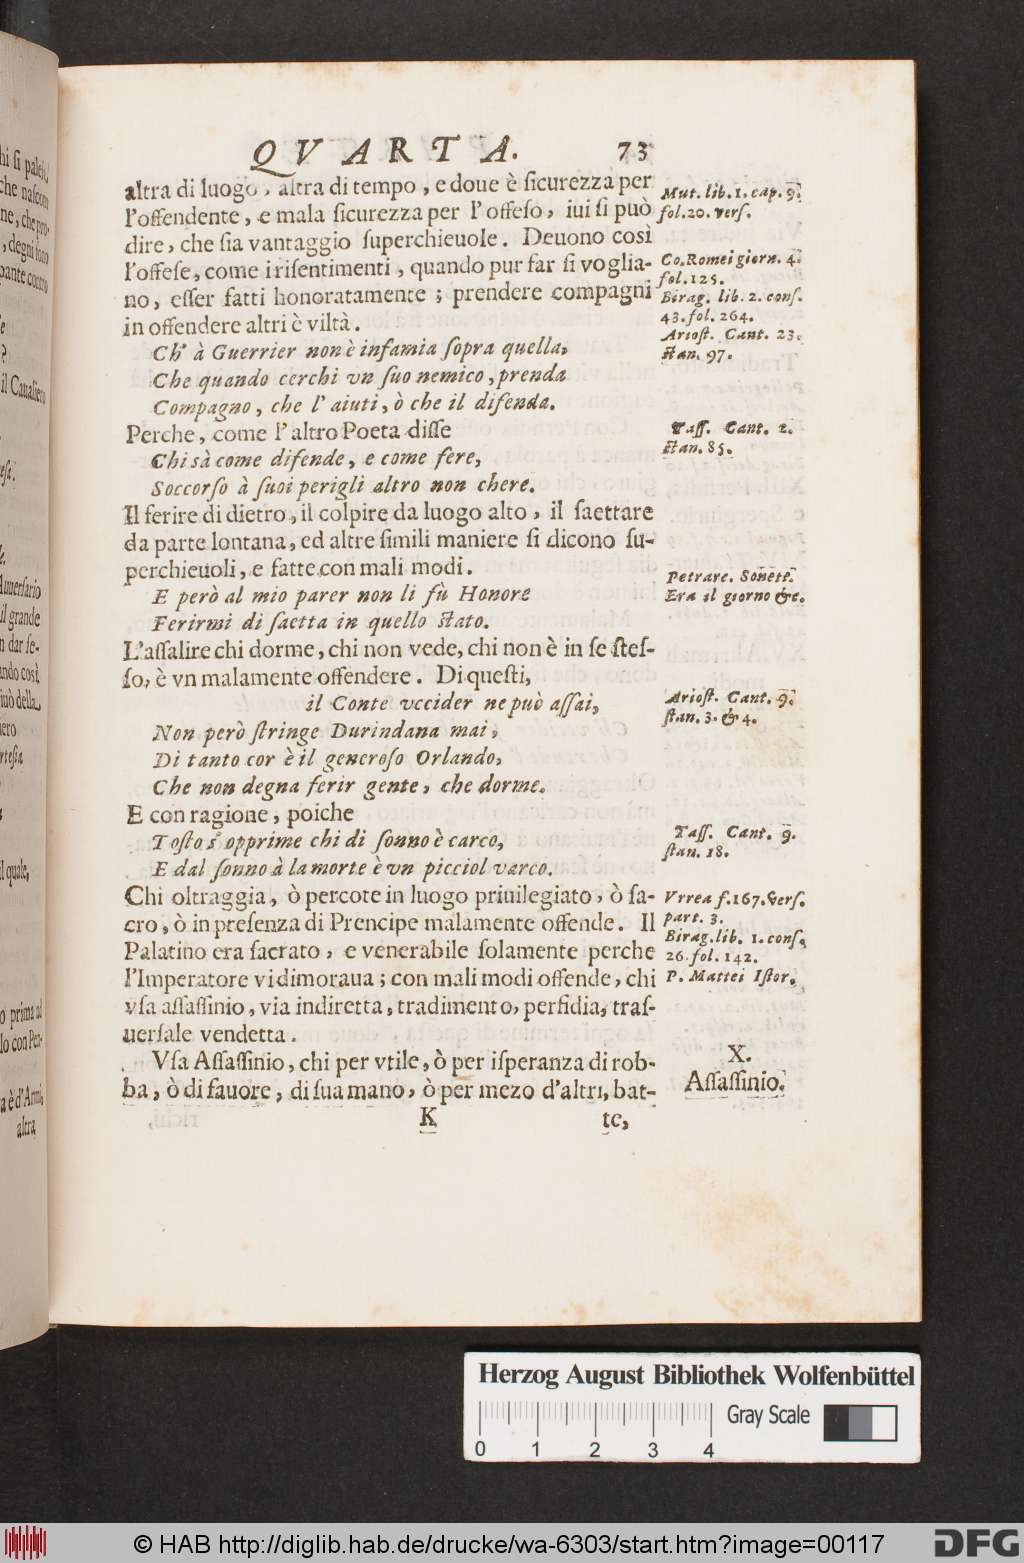 QVARTA. 73
altra di luogo, altra di tempo, e doue è ſicurezza per
l'offendente, e mala ſicurezza per l'offeſo, iui ſi può
dire, che ſia vantaggio ſuperchieuole. Deuono così
l'offeſe, come i riſentimenti, quando pur far ſi voglia-
no, eſſer fatti honoratamente; prendere compagni
in offendere altri è viltà.
Ch' à Guerrier non è infamia ſopra quella,
Che quando cerchi vn ſuo nemico, prenda
Compagno, che l'aiuti, ò che il difenda.
Perche, come l'altro Poeta diſſe
Chi sà come difende, e come fere,
Soccorſo à ſuoi perigli altro non chere.
Il ferire di dietro, il colpire da luogo alto, il ſaettare
da parte lontana, ed altre ſimili maniere ſi dicono ſu-
perchieuoli, e fatte con mali modi.
E però al mio parer non li fù Honore
Ferirmi di ſaetta in quello ſtato.
L'aſſalire chi dorme, chi non vede, chi non è in ſe ſteſ-
ſo, è vn malamente offendere. Di queſti,
il Conte vccider ne può aſſai,
Non però ſtringe Durindana mai,
Di tanto cor è il generoſo Orlando,
Che non degna ferir gente, che dorme.
E con ragione, poiche
Toſto s'opprime chi di ſonno è carco,
E dal ſonno à la morte è vn picciol varco.
Chi oltraggia, ò percote in luogo priuilegiato, ò ſa-
cro, ò in preſenza di Prencipe malamente offende. Il
Palatino era ſacrato, e venerabile ſolamente perche
l'Imperatore vi dimoraua; con mali modi offende, chi
vſa aſſaſſinio, via indiretta, tradimento, perfidia, traſ-
uerſale vendetta.
Vſa Aſſaſſinio, chi per vtile, ò per iſperanza di rob-
ba, ò di fauore, di ſua mano, ò per mezo d'altri, bat-
K te,
Mut. lib. 1. cap. 9.
fol. 20. verſ.
Co. Romei giorn. 4.
fol. 125.
Birag. lib. 2. conſ.
43. fol. 264.
Arioſt. Cant. 23.
ſtan. 97.
Taſſ. Cant. 2.
ſtan. 85.
Petrarc. Sonett.
Era il giorno &c.
Arioſt. Cant. 9.
ſtan. 3. & 4.
Taſſ. Cant. 9.
ſtan. 18.
Vrrea f. 167. verſ.
part. 3.
Birag. lib. 1. conſ.
26. fol. 142.
P. Mattei Iſtor.
X.
Aſſaſſinio.
Herzog August Bibliothek Wolfenbüttel
Gray Scale
0 1 2 3 4
© HAB http://diglib.hab.de/drucke/wa-6303/start.htm?image=00117
DFG